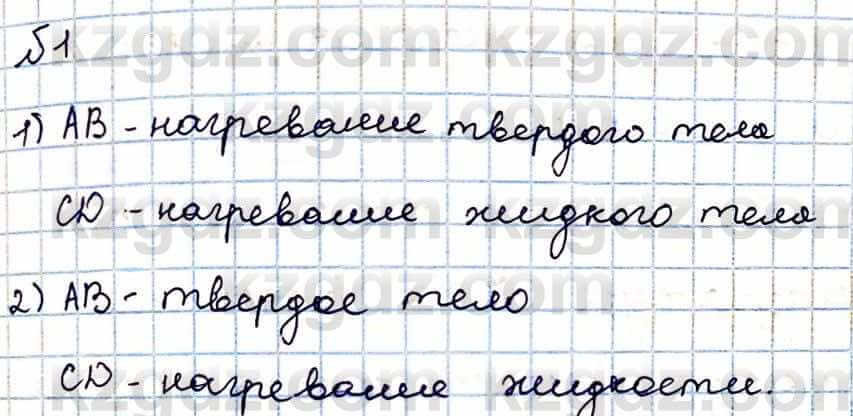 №1
1) AB - нагревание твердого тела
CD - нагревание жидкого тела
2) AB - твердое тело
CD - нагревание жидкости.
kzgdz.com kzgdz.com